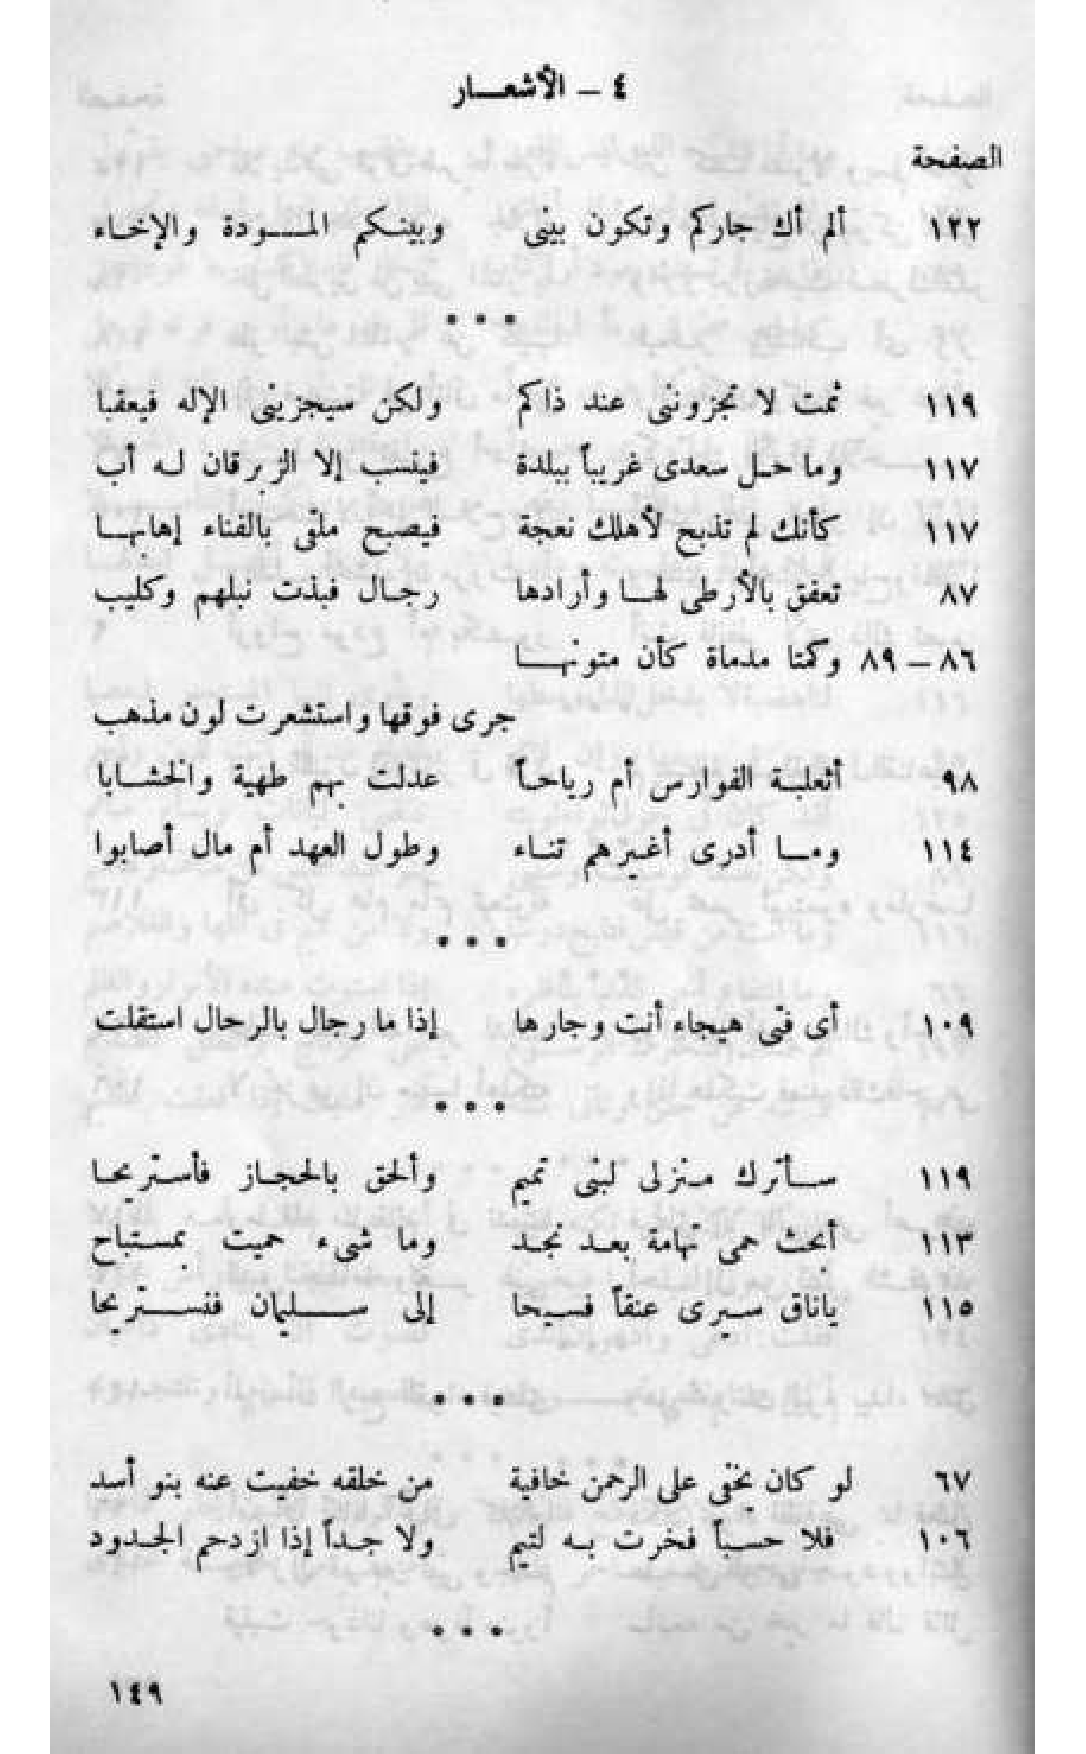 ٤ – الأشعـــار
الصفحة
١٢٢ ألم أك جاركم وتكون بينى وبينـكم المـــودة والإخـاء
* * *
١١٩ ثمت لا تجزوننى عند ذاكم ولكن سيجزينى الإله فيعقبا
١١٧ وما حـل سعدى غريباً ببلدة فينسب إلا الزبرقان لـه أب
١١٧ كأنك لم تذبح لأهلك نعجة فيصبح ملقى بالفناء إهابهـا
٨٧ تعفق بالأرطى لهـا وأرادها رجـال فبذت نبلهم وكليب
٨٦ – ٨٩ وكمتا مدماة كأن متونهـــا
جرى فوقها واستشعرت لون مذهب
٩٨ أثعلبـة الفوارس أم رياحـاً عدلت بهم طهية والخشـابا
١١٤ ومــا أدرى أغـيرهم تنـاء وطول العهد أم مال أصابوا
* * *
١٠٩ أى فتى هيجاء أنت وجارها إذا ما رجال بالرحال استقلت
* * *
١١٩ ســأترك مـنزلى لبنى تميم وألحق بالحجـاز فأسـتريحـا
١١٣ أبحث حمى تهامة بعـد نجـد وما شىء حميت بمسـتباح
١١٥ ياناق سـيرى عنقاً فسـيحا إلى ســـليمان فنســـتريحا
* * *
٦٧ لو كان يخفى على الرحمن خافية من خلقه خفيت عنه بنو أسد
١٠٦ فلا حسـباً فخرت بـه لتيم ولا جـداً إذا ازدحم الجـدود
* * *
١٤٩